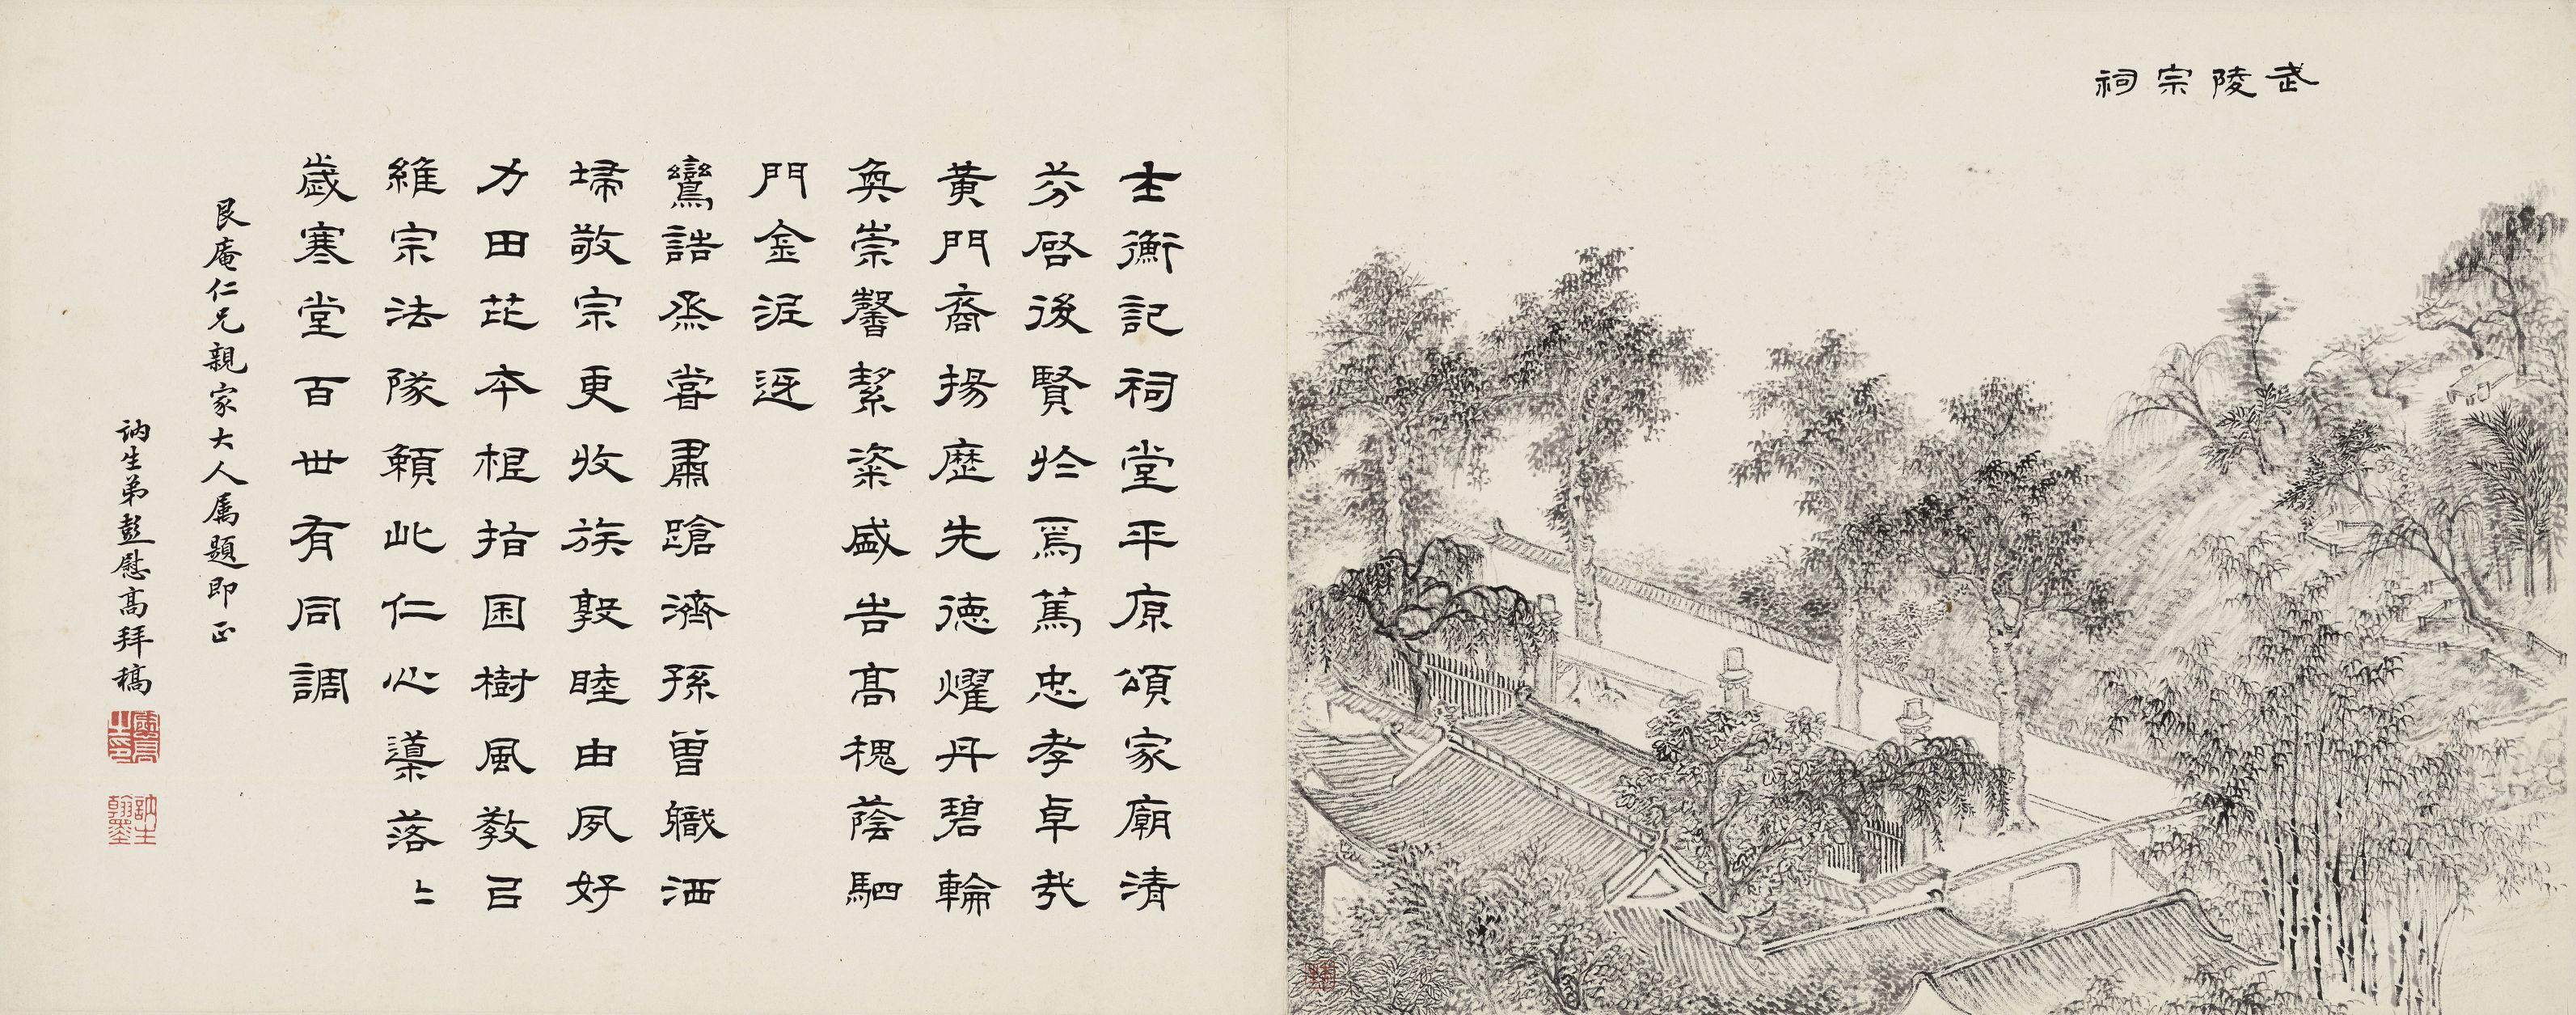 武陵宗祠
士衡記祠堂平原頌家廟清
芬啓後賢於焉篤忠孝卓哉
黃門裔揚歷先德燿丹碧輪
奐崇馨絜粢盛告高槐蔭駟
門金泥迓
鸞誥烝嘗肅蹌濟孫曾職洒
埽敬宗更收族敦睦由夙好
力田芘本根指囷樹風教㠯
維宗法隊賴此仁心導落〻
歲寒堂百世有同調
艮庵仁兄親家大人屬題即正
訥生弟彭慰高拜稿
慰高之印
訥生翰墨